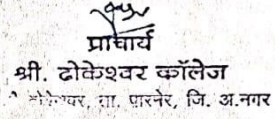 प्राचार्य
श्री. ढोकेश्वर कॉलेज
ढोकेश्वर, ता. पारनेर, जि. अ.नगर